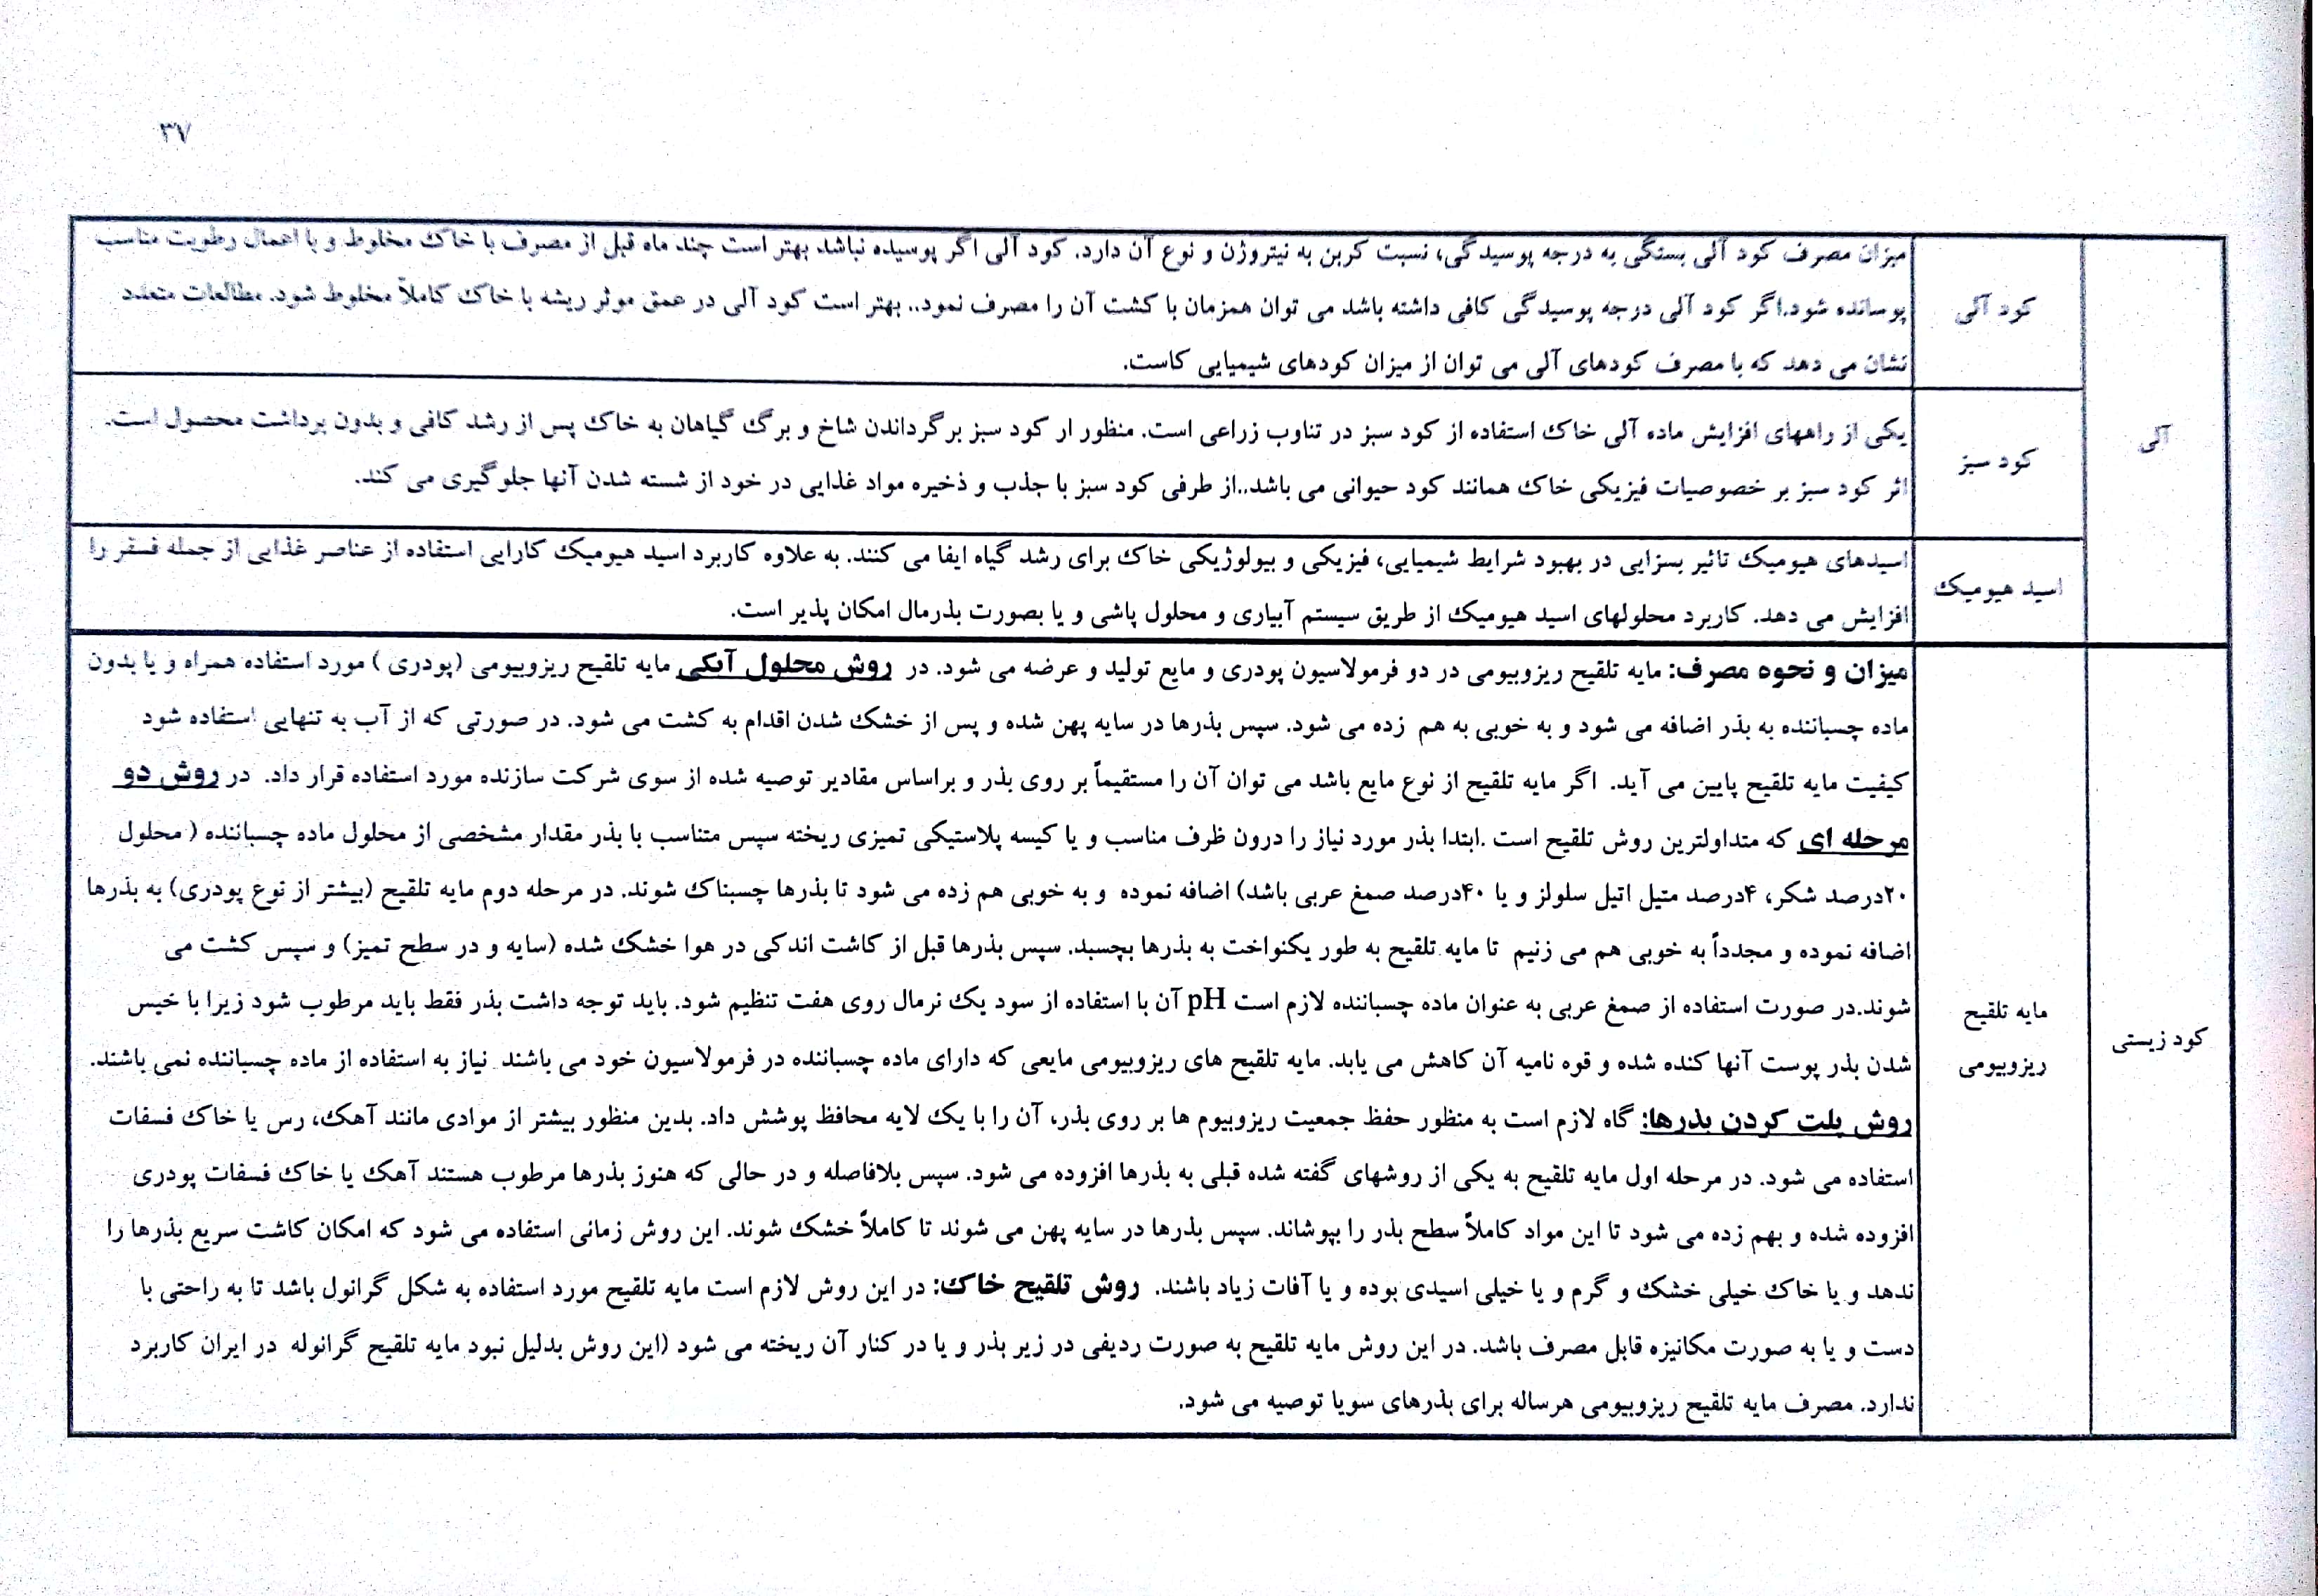 ۳۷
آلی
کود آلی
میزان مصرف کود آلی بستگی به درجه پوسیدگی، نسبت کربن به نیتروژن و نوع آن دارد. کود آلی اگر پوسیده نباشد بهتر است چند ماه قبل از مصرف با خاک مخلوط و با اعمال رطوبت مناسب
پوسانده شود.اگر کود آلی درجه پوسیدگی کافی داشته باشد می توان همزمان با کشت آن را مصرف نمود.. بهتر است کود آلی در عمق موثر ریشه با خاک کاملاً مخلوط شود. مطالعات متعدد
نشان می دهد که با مصرف کودهای آلی می توان از میزان کودهای شیمیایی کاست.
کود سبز
یکی از راههای افزایش ماده آلی خاک استفاده از کود سبز در تناوب زراعی است. منظور ار کود سبز برگرداندن شاخ و برگ گیاهان به خاک پس از رشد کافی و بدون برداشت محصول است.
اثر کود سبز بر خصوصیات فیزیکی خاک همانند کود حیوانی می باشد..از طرفی کود سبز با جذب و ذخیره مواد غذایی در خود از شسته شدن آنها جلوگیری می کند.
اسید هیومیک
اسیدهای هیومیک تاثیر بسزایی در بهبود شرایط شیمیایی، فیزیکی و بیولوژیکی خاک برای رشد گیاه ایفا می کنند. به علاوه کاربرد اسید هیومیک کارایی استفاده از عناصر غذایی از جمله فسفر را
افزایش می دهد. کاربرد محلولهای اسید هیومیک از طریق سیستم آبیاری و محلول پاشی و یا بصورت بذرمال امکان پذیر است.
کود زیستی
مایه تلقیح
ریزوبیومی
میزان و نحوه مصرف: مایه تلقیح ریزوبیومی در دو فرمولاسیون پودری و مایع تولید و عرضه می شود. در روش محلول آبکی مایه تلقیح ریزوبیومی (پودری ) مورد استفاده همراه و یا بدون
ماده چسباننده به بذر اضافه می شود و به خوبی به هم زده می شود. سپس بذرها در سایه پهن شده و پس از خشک شدن اقدام به کشت می شود. در صورتی که از آب به تنهایی استفاده شود
کیفیت مایه تلقیح پایین می آید. اگر مایه تلقیح از نوع مایع باشد می توان آن را مستقیماً بر روی بذر و براساس مقادیر توصیه شده از سوی شرکت سازنده مورد استفاده قرار داد. در روش دو
مرحله ای که متداولترین روش تلقیح است .ابتدا بذر مورد نیاز را درون ظرف مناسب و یا کیسه پلاستیکی تمیزی ریخته سپس متناسب با بذر مقدار مشخصی از محلول ماده چسباننده ( محلول
۲۰درصد شکر، ۴درصد متیل اتیل سلولز و یا ۴۰درصد صمغ عربی باشد) اضافه نموده و به خوبی هم زده می شود تا بذرها چسبناک شوند. در مرحله دوم مایه تلقیح (بیشتر از نوع پودری) به بذرها
اضافه نموده و مجدداً به خوبی هم می زنیم تا مایه تلقیح به طور یکنواخت به بذرها بچسبد. سپس بذرها قبل از کاشت اندکی در هوا خشک شده (سایه و در سطح تمیز) و سپس کشت می
شوند.در صورت استفاده از صمغ عربی به عنوان ماده چسباننده لازم است pH آن با استفاده از سود یک نرمال روی هفت تنظیم شود. باید توجه داشت بذر فقط باید مرطوب شود زیرا با خیس
شدن بذر پوست آنها کنده شده و قوه نامیه آن کاهش می یابد. مایه تلقیح های ریزوبیومی مایعی که دارای ماده چسباننده در فرمولاسیون خود می باشند نیاز به استفاده از ماده چسباننده نمی باشند.
روش پلت کردن بذرها: گاه لازم است به منظور حفظ جمعیت ریزوبیوم ها بر روی بذر، آن را با یک لایه محافظ پوشش داد. بدین منظور بیشتر از موادی مانند آهک، رس یا خاک فسفات
استفاده می شود. در مرحله اول مایه تلقیح به یکی از روشهای گفته شده قبلی به بذرها افزوده می شود. سپس بلافاصله و در حالی که هنوز بذرها مرطوب هستند آهک یا خاک فسفات پودری
افزوده شده و بهم زده می شود تا این مواد کاملاً سطح بذر را بپوشاند. سپس بذرها در سایه پهن می شوند تا کاملاً خشک شوند. این روش زمانی استفاده می شود که امکان کاشت سریع بذرها را
ندهد و یا خاک خیلی خشک و گرم و یا خیلی اسیدی بوده و یا آفات زیاد باشند. روش تلقیح خاک: در این روش لازم است مایه تلقیح مورد استفاده به شکل گرانول باشد تا به راحتی با
دست و یا به صورت مکانیزه قابل مصرف باشد. در این روش مایه تلقیح به صورت ردیفی در زیر بذر و یا در کنار آن ریخته می شود (این روش بدلیل نبود مایه تلقیح گرانوله در ایران کاربرد
ندارد. مصرف مایه تلقیح ریزوبیومی هرساله برای بذرهای سویا توصیه می شود.